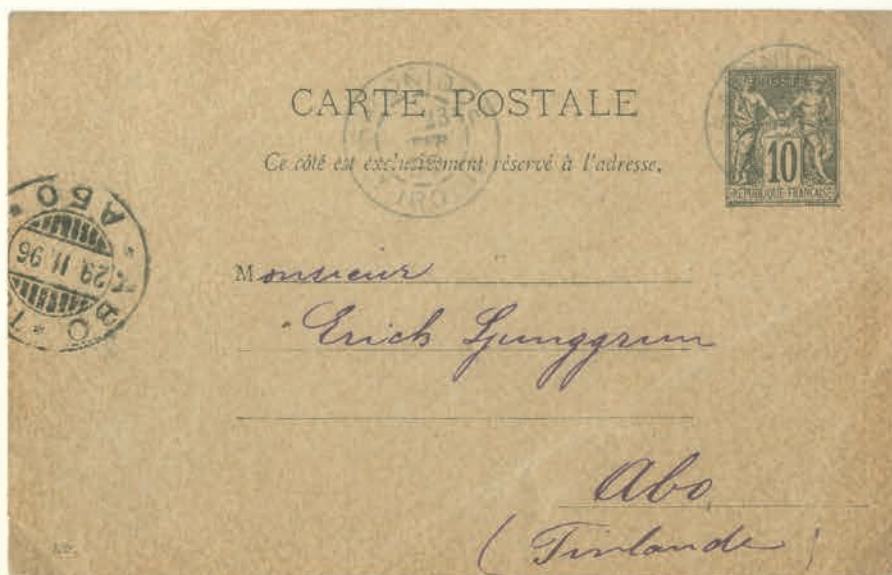 CARTE POSTALE
Ce côté est exclusivement réservé à l'adresse.
POSTES
10
REPUBLIQUE FRANÇAISE
Monsieur
Erich Ljunggrun
Abo
(Finlande)
ÅBO
29.11.96